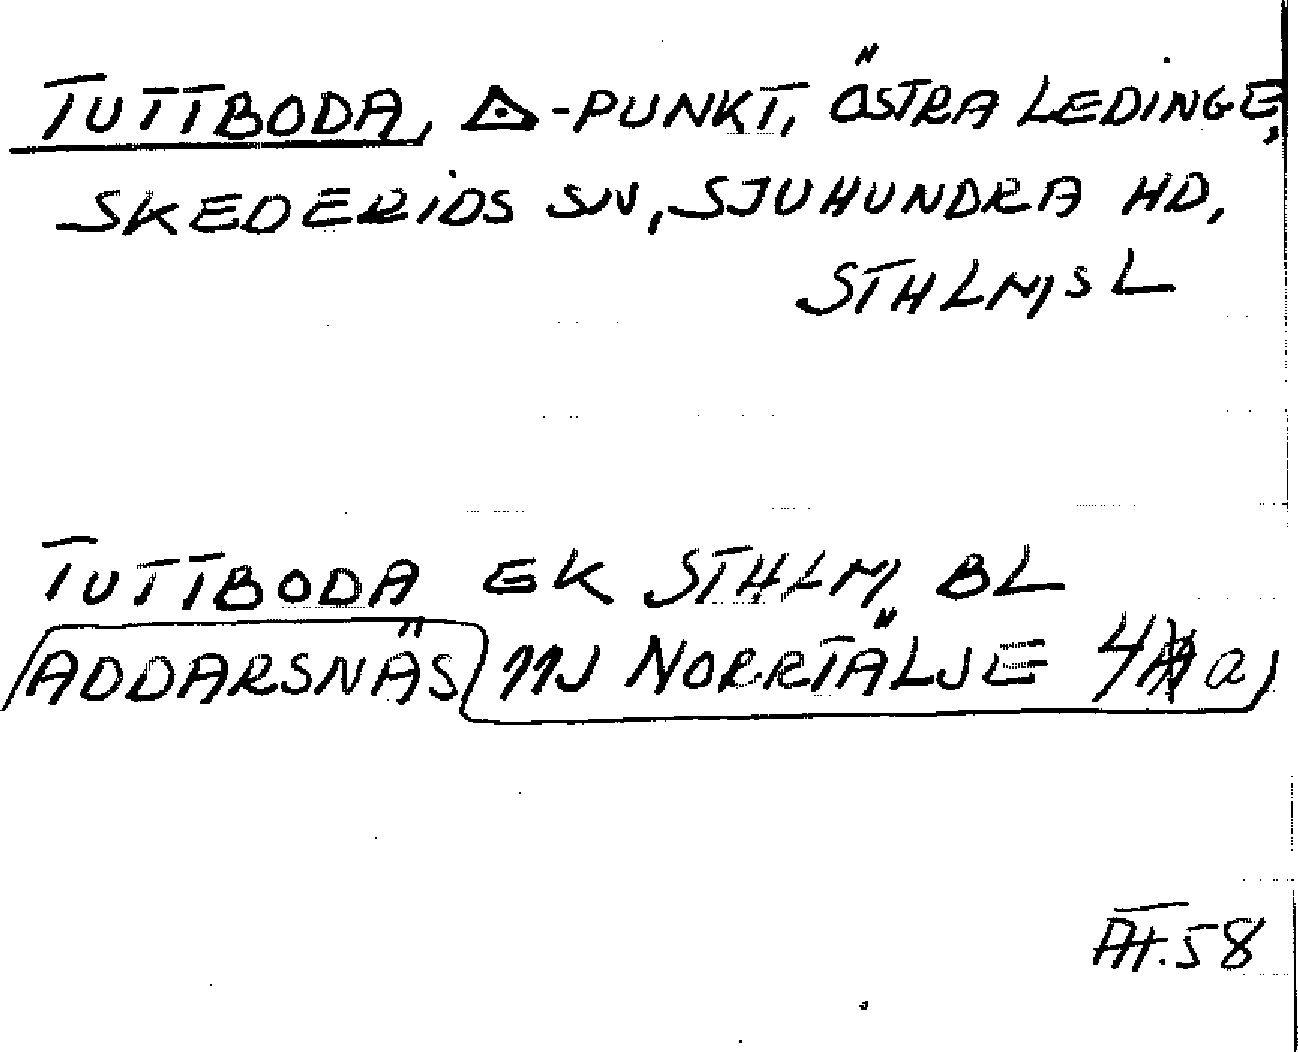 TUTTBODA, △-PUNKT, ÖSTRA LEDINGE,
SKEDERIDS SN, SJUHUNDRA HD,
STHLMS L
TUTTBODA EK STHLM BL
ADDARSNÄS NJ NORRTÄLJE 4 a)
ÄH.58